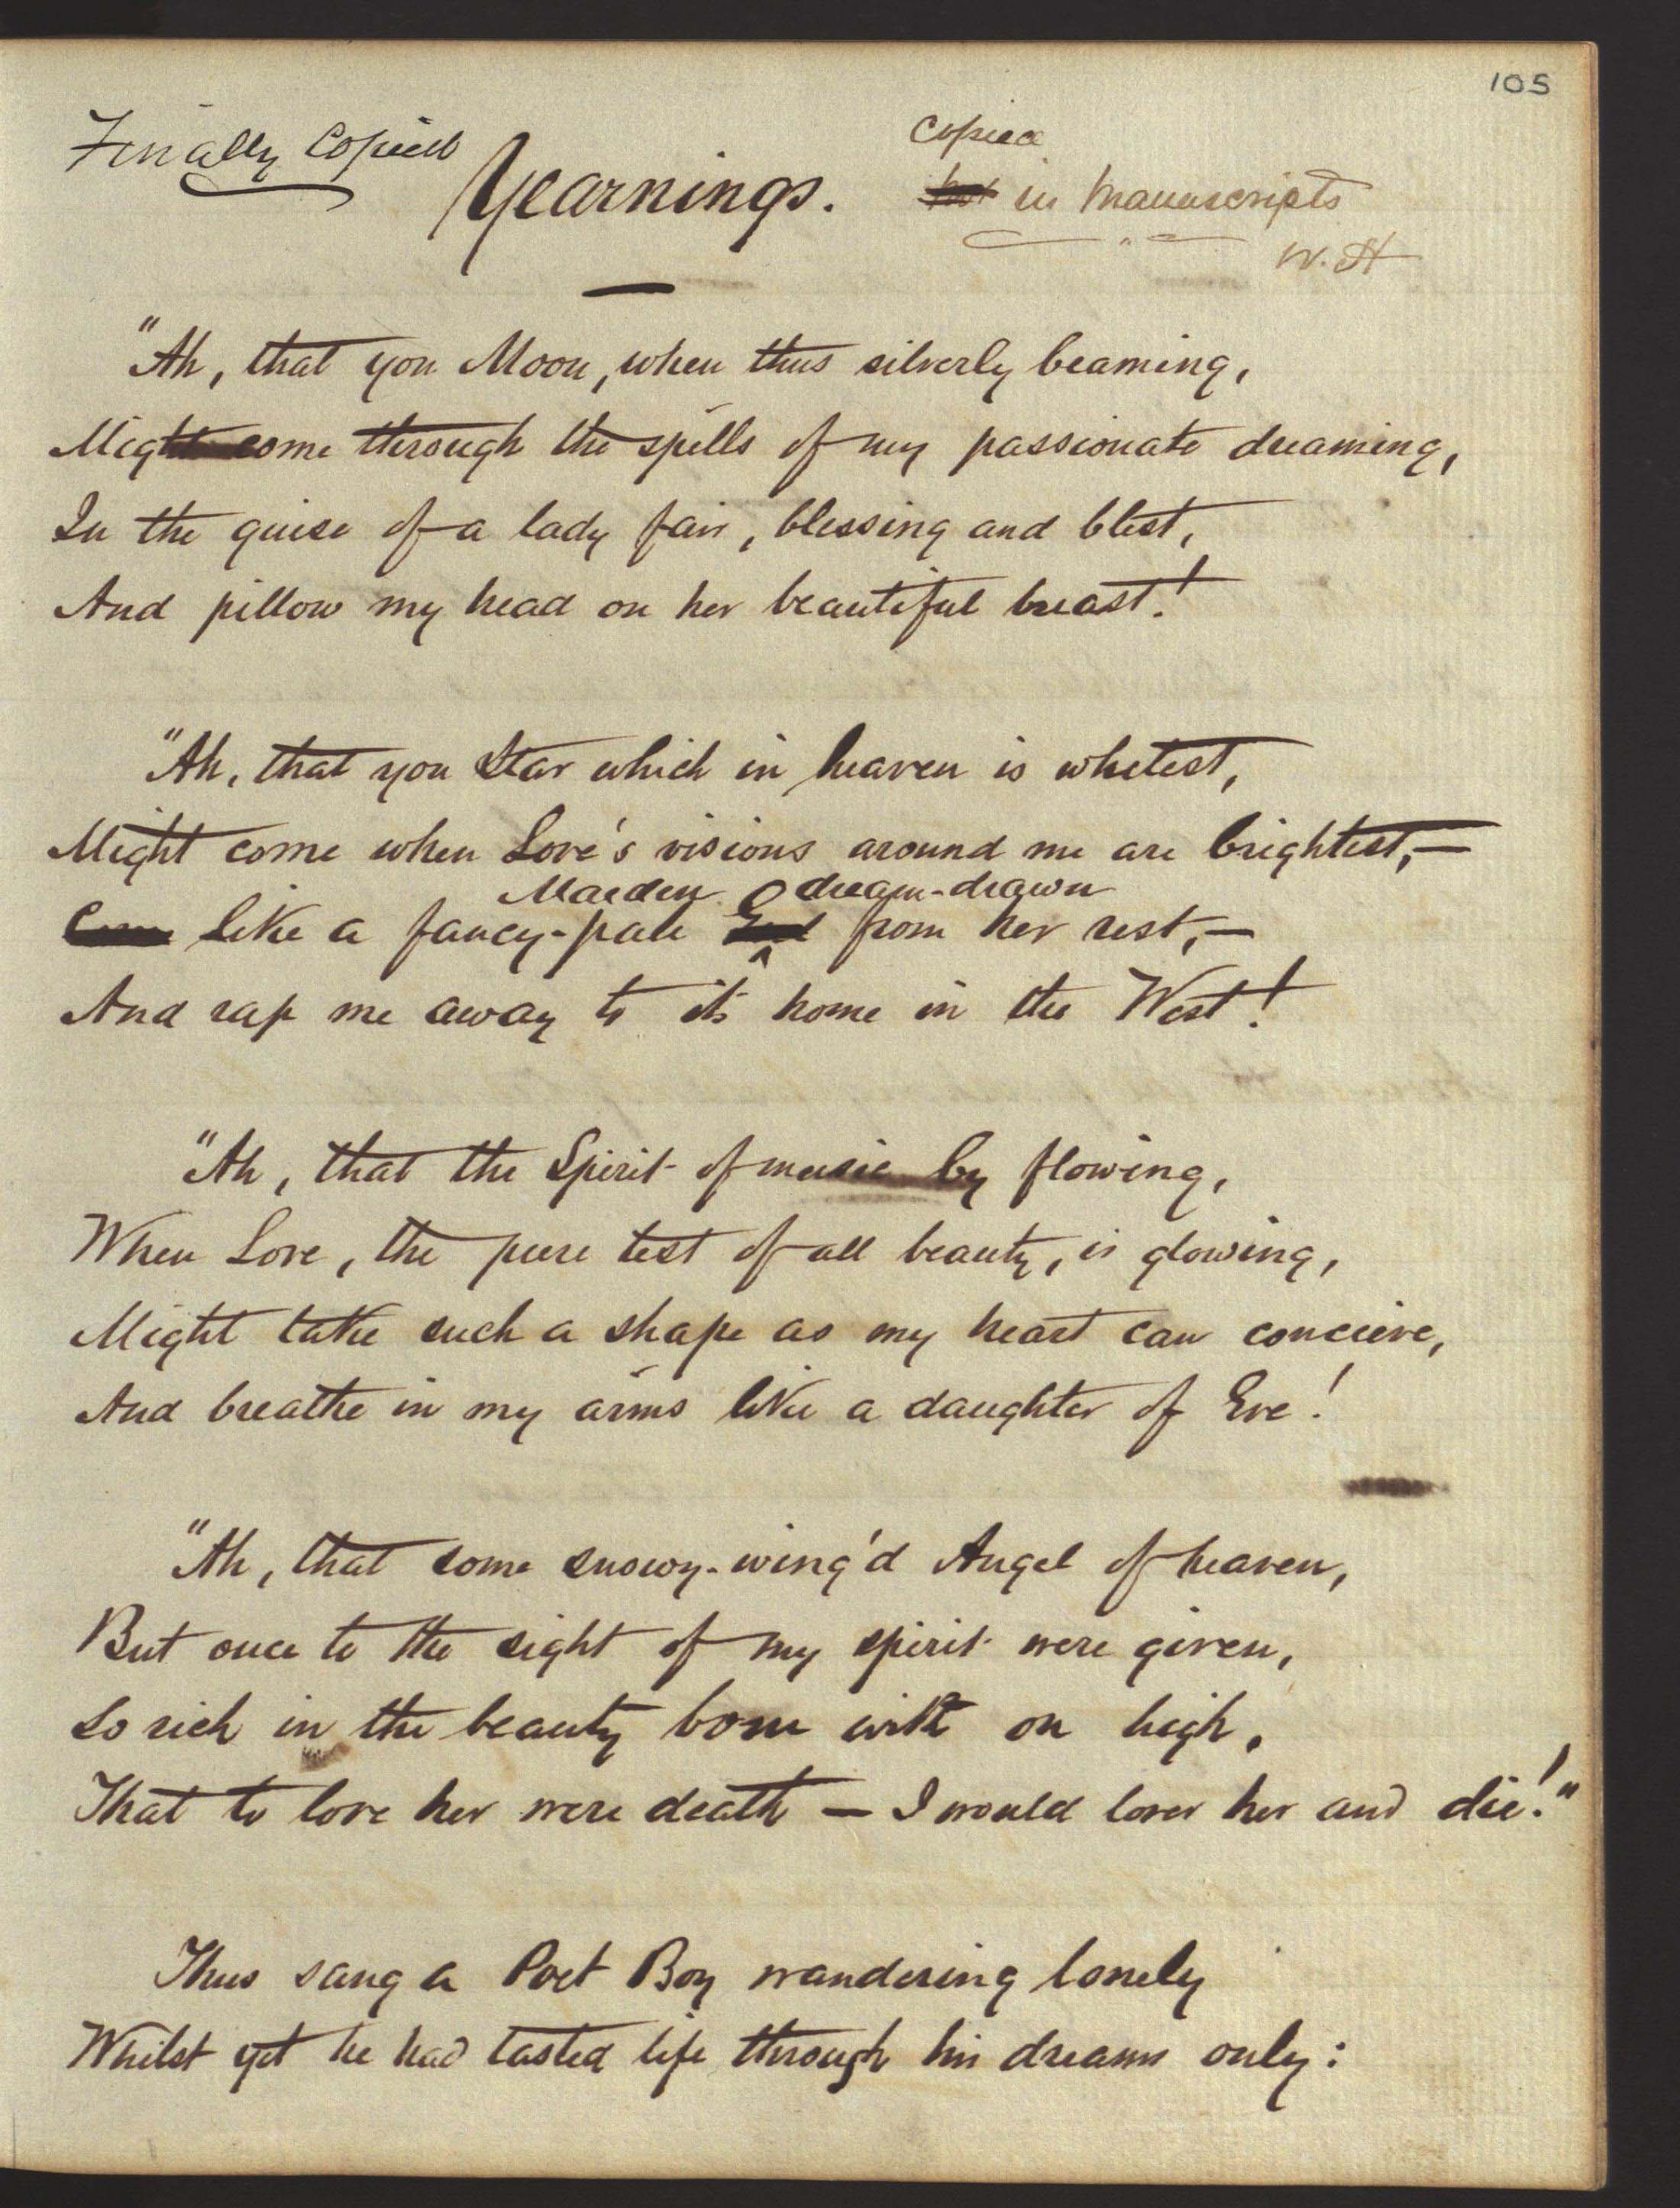 105
Finally Copied
copied
Yearnings.
not in Manuscripts
W. H
"Ah, that yon Moon, when thus silverly beaming,
Might come through the spells of my passionate dreaming,
In the guise of a lady fair, blessing and blest,
And pillow my head on her beautiful breast!
"Ah, that yon Star which in heaven is whitest,
Might come when Love's visions around me are brightest,—
Maiden dream-drawn
Come like a fancy-pale from her rest,—
And rap me away to its home in the West!
"Ah, that the Spirit of music by flowing,
When Love, the pure test of all beauty, is glowing,
Might take such a shape as my heart can concieve,
And breathe in my arms like a daughter of Eve!
"Ah, that some snowy-wing'd Angel of heaven,
But once to the sight of my spirit were given,
So rich in the beauty born with on high,
That to love her were death — I would lover her and die!"
Thus sang a Poet Boy wandering lonely
Whilst yet he had tasted life through his dreams only: